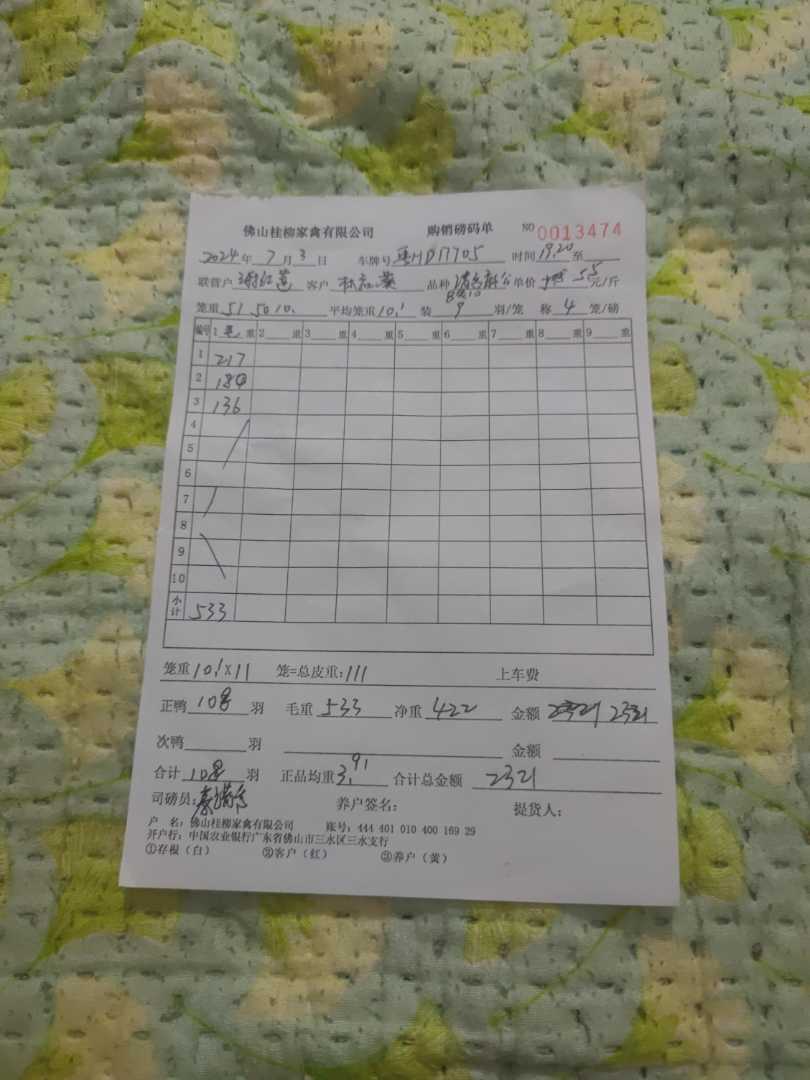 佛山桂柳家禽有限公司 购销磅码单 NO 0013474
2024年7月3日 车牌号 时间19:20至
联营户 客户 品种 单价 5.5元/斤
笼重51 50 10. 平均笼重10.1 装9羽/笼 称4笼/磅
编号 1 重 2 重 3 重 4 重 5 重 6 重 7 重 8 重 9 重
1 217
2 180
3 136
4
5
6
7
8
9
10
小计 533
笼重10.1X11 笼=总皮重:111 上车费
正鸭 羽 毛重533 净重422 金额2321 2321
次鸭 羽 金额
合计 羽 正品均重3.91 合计总金额2321
司磅员: 养户签名: 提货人:
户 名:佛山桂柳家禽有限公司 账号:444 401 010 400 169 29
开户行:中国农业银行广东省佛山市三水区三水支行
①存根(白) ②客户(红) ③养户(黄)